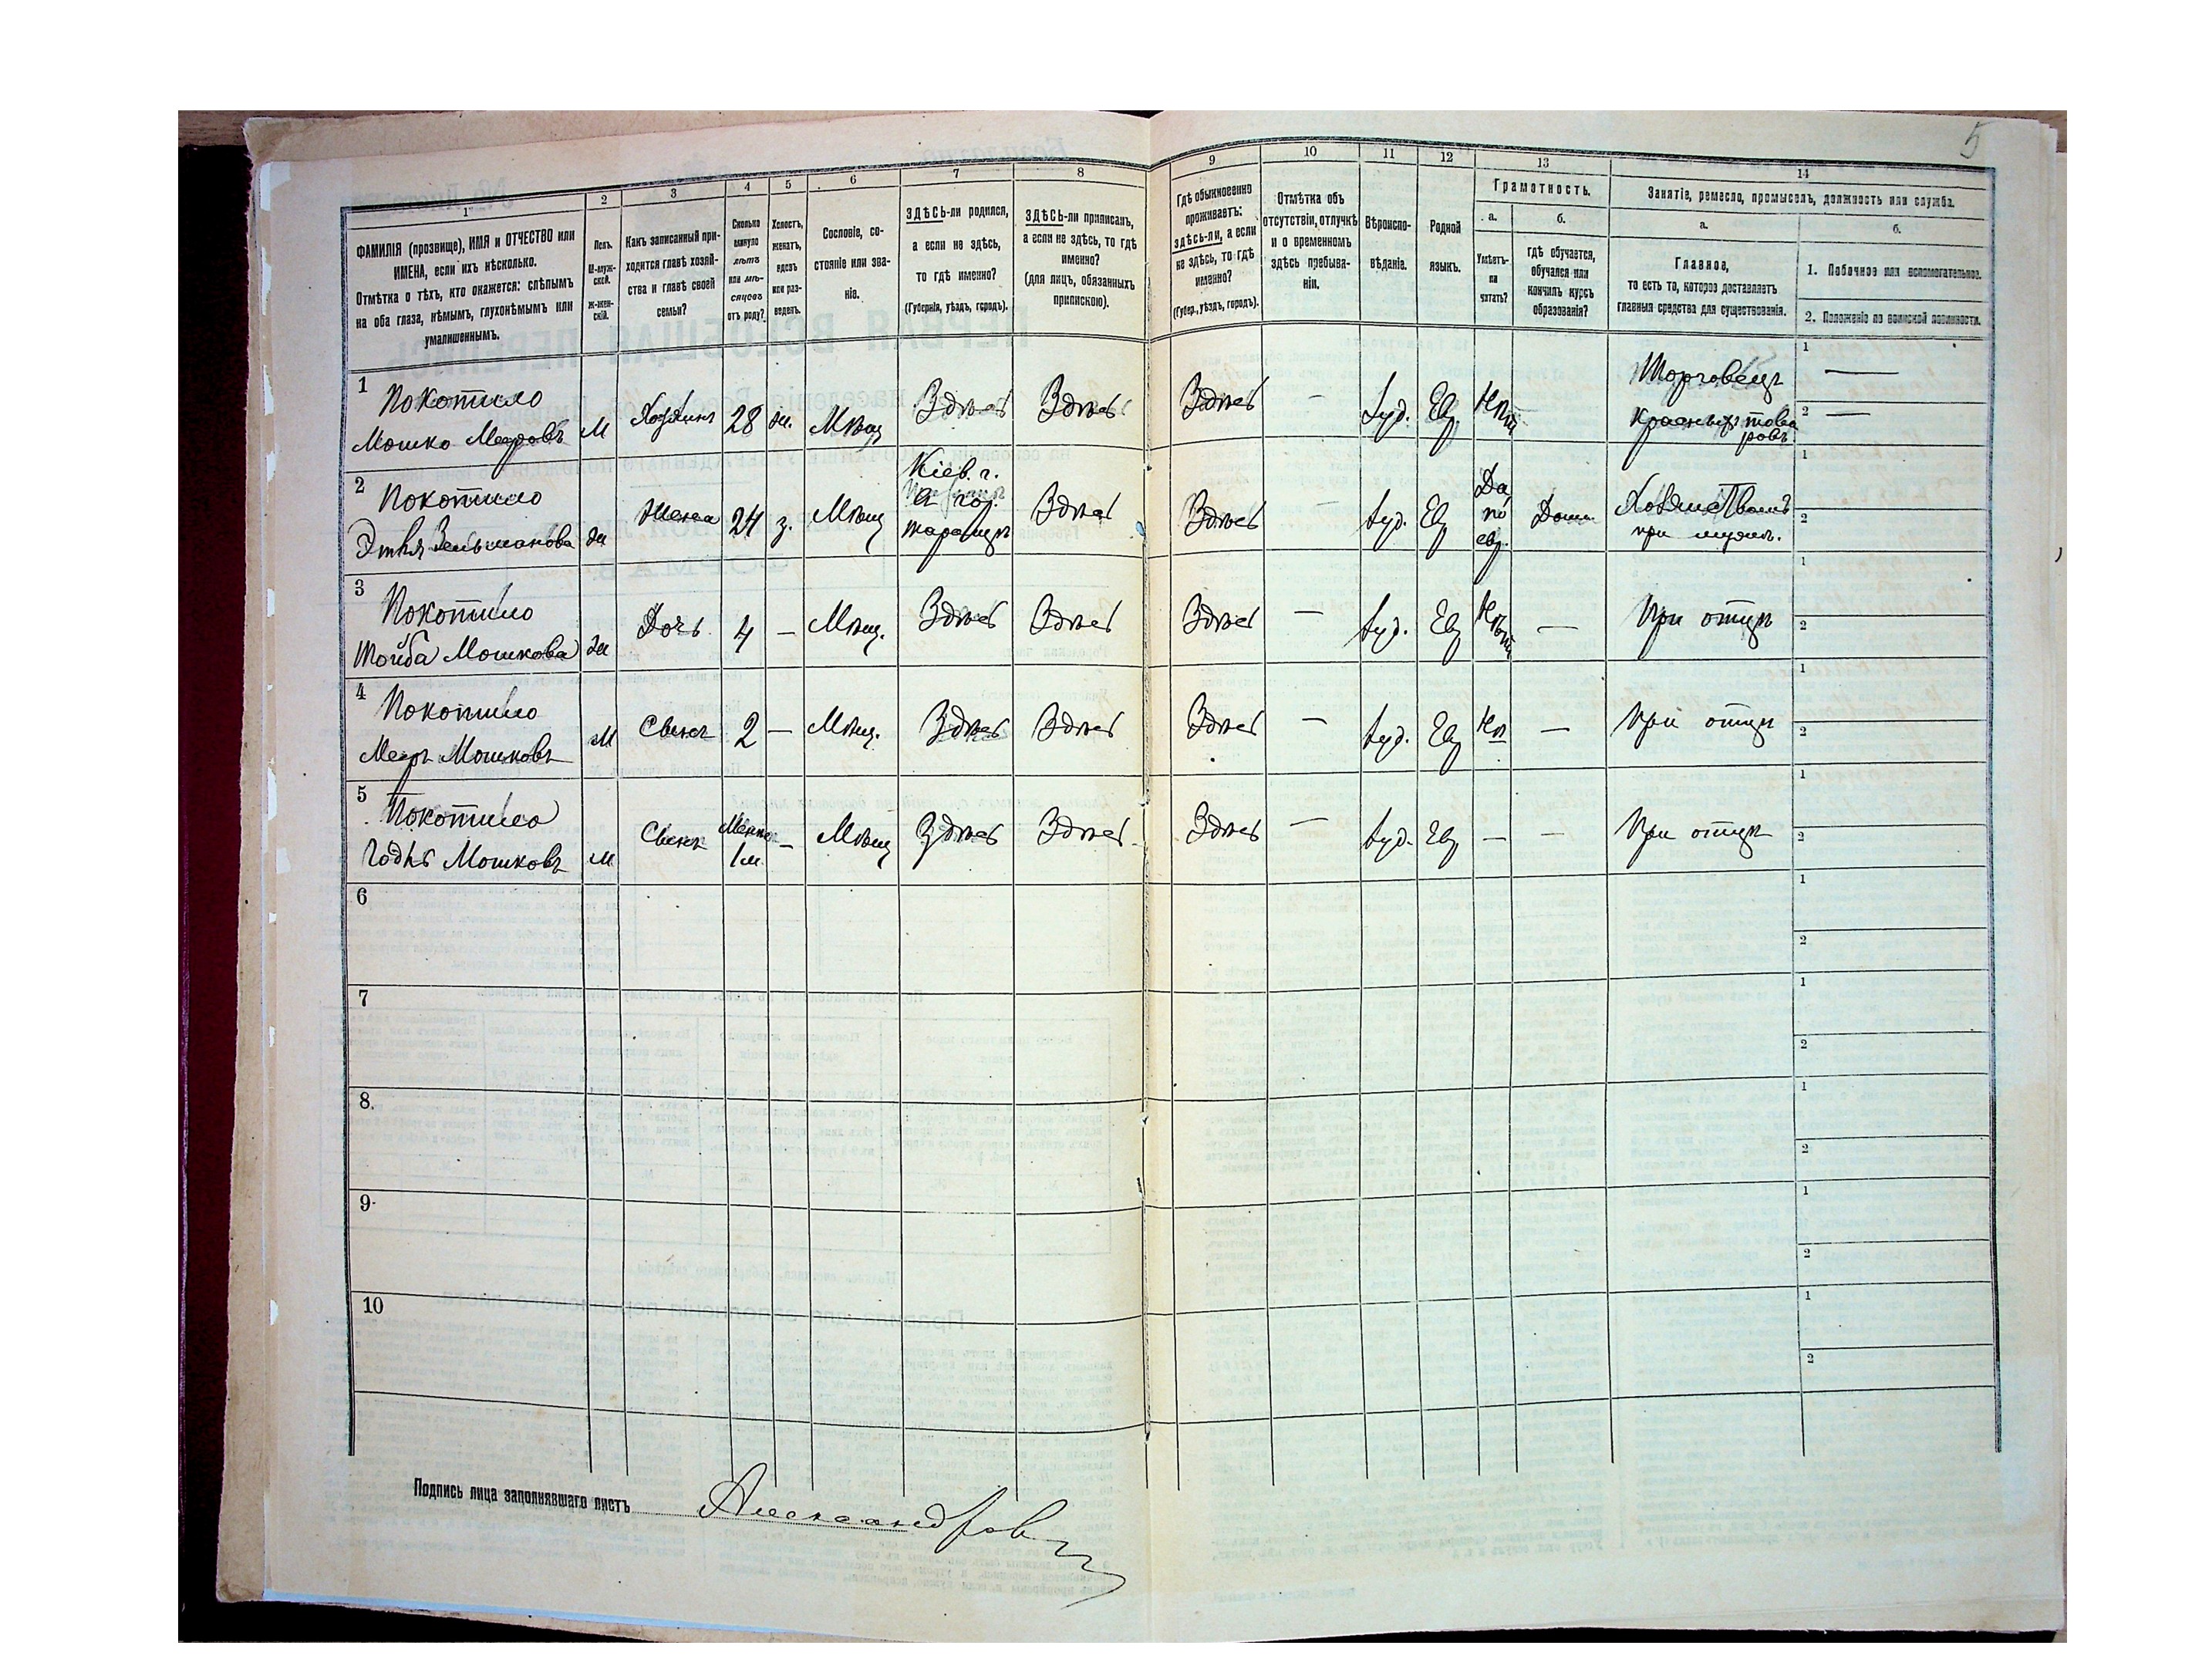 5
1
2
3
4
5
6
7
8
9
10
11
12
13
14
ФАМИЛІЯ (прозвище), ИМЯ и ОТЧЕСТВО или
ИМЕНА, если ихъ нѣсколько.
Отмѣтка о тѣхъ, кто окажется: слѣпымъ
на оба глаза, нѣмымъ, глухонѣмымъ или
умалишеннымъ.
Полъ.
М-муж-
ской.
Ж-жен-
скій.
Какъ записанный при-
ходится главѣ хозяй-
ства и главѣ своей
семьи?
Сколько
минуло
лѣтъ
или мѣ-
сяцевъ
отъ роду?
Холостъ,
женатъ,
вдовъ
или раз-
веденъ.
Сословіе, со-
стояніе или зва-
ніе.
ЗДѢСЬ-ли родился,
а если не здѣсь,
то гдѣ именно?
(Губернія, уѣздъ, городъ).
ЗДѢСЬ-ли приписанъ,
а если не здѣсь, то гдѣ
именно?
(для лицъ, обязанныхъ
припискою).
Гдѣ обыкновенно
проживаетъ:
здѣсь-ли, а если
не здѣсь, то гдѣ
именно?
(Губер., уѣздъ, городъ).
Отмѣтка объ
отсутствіи, отлучкѣ
и о временномъ
здѣсь пребыва-
ніи.
Вѣроиспо-
вѣданіе.
Родной
языкъ.
Грамотность.
а.
Умѣетъ-
ли
читать?
б.
гдѣ обучается,
обучался или
кончилъ курсъ
образованія?
Занятіе, ремесло, промыселъ, должность или служба.
а.
Главное,
то есть то, которое доставляетъ
главныя средства для существованія.
б.
1. Побочное или вспомогательное.
2. Положеніе по воинской повинности.
1
Покотило
Мошко Мееровъ
М
Хозяинъ
28
ж.
Мѣщ
Здѣсь
Здѣсь
Здѣсь
—
Іуд.
Евр
Нѣтъ
Торговецъ
красныхъ това
ровъ
1 —
2 —
2
Покотило
Этля Зельманова
ж
Жена
24
з.
Мѣщ
Кіев. г.
а гор.
Таращи
Здѣсь
Здѣсь
—
Іуд.
Евр
Да
по
евр.
Дома
Хозяйствомъ
при мужѣ.
1
2
3
Покотило
Тойба Мошкова
ж
Дочь
4
—
Мѣщ.
Здѣсь
Здѣсь
Здѣсь
—
Іуд.
Евр
Нѣтъ
—
При отцѣ
1
2
4
Покотило
Мееръ Мошковъ
М
Сынъ
2
—
Мѣщ.
Здѣсь
Здѣсь
Здѣсь
—
Іуд.
Евр
Нѣ
—
При отцѣ
1
2
5
Покотило
Мошковъ
м
Сынъ
Менѣе
1 м.
—
Мѣщ
Здѣсь
Здѣсь
Здѣсь
—
Іуд.
Евр
—
—
При отцѣ
1
2
6
1
2
7
1
2
8.
1
2
9.
1
2
10
1
2
Подпись лица заполнявшаго листъ